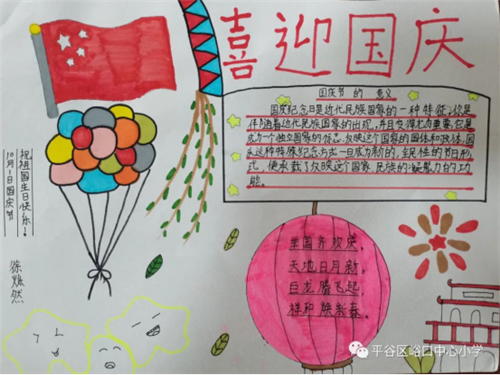 喜迎国庆
国庆节的意义
国庆纪念日是近代民族国家的一种特征,它是
伴随着近代民族国家的出现,并且变得尤为重要。它是
成为一个独立国家的标志,反映这个国家的国体和政体。国
庆这种特殊纪念方式一旦成为新的、全民性的节日形
式,便承载了反映这个国家、民族的凝聚力的功
能。
祝祖国生日快乐!
10月1日国庆节
举国齐欢庆,
天地日月新。
巨龙腾飞起,
祥和焕新春。
平谷区峪口中心小学